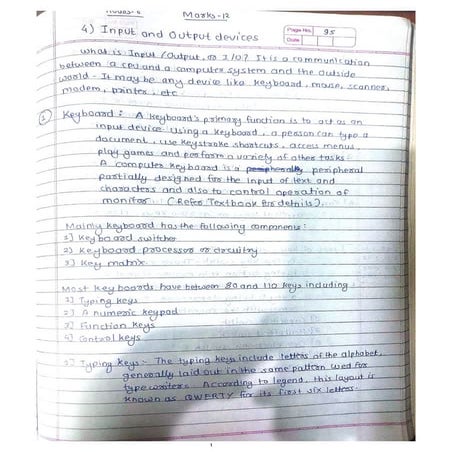 Hours-6 Marks-12
4) Input and Output devices
Page No. 95
Date
What is Input/Output, or I/O? It is a communication
between a cpu and a computer system and the outside
world - It may be any device like keyboard, mouse, scanner,
modem, printer, etc
1 Keyboard: A keyboard's primary function is to act as an
input device. Using a keyboard, a person can type a
document, use keystroke shortcuts, access menus,
play games and perform a variety of other tasks.
A computer keyboard is a peripheral
partially designed for the input of text and
characters and also to control operation of
monitor (Refer Textbook for details).
Mainly keyboard has the following components:
1) Keyboard switches
2) Keyboard processor or circuitry
3) Key matrix
Most keyboards have between 80 and 110 keys including:
1) Typing keys
2) A numeric keypad
3) Function keys
4) Control keys
1) Typing keys:- The typing keys include letters of the alphabet,
generally laid out in the same pattern used for
typewriters. According to legend, this layout is
known as QWERTY for its first six letters.
1